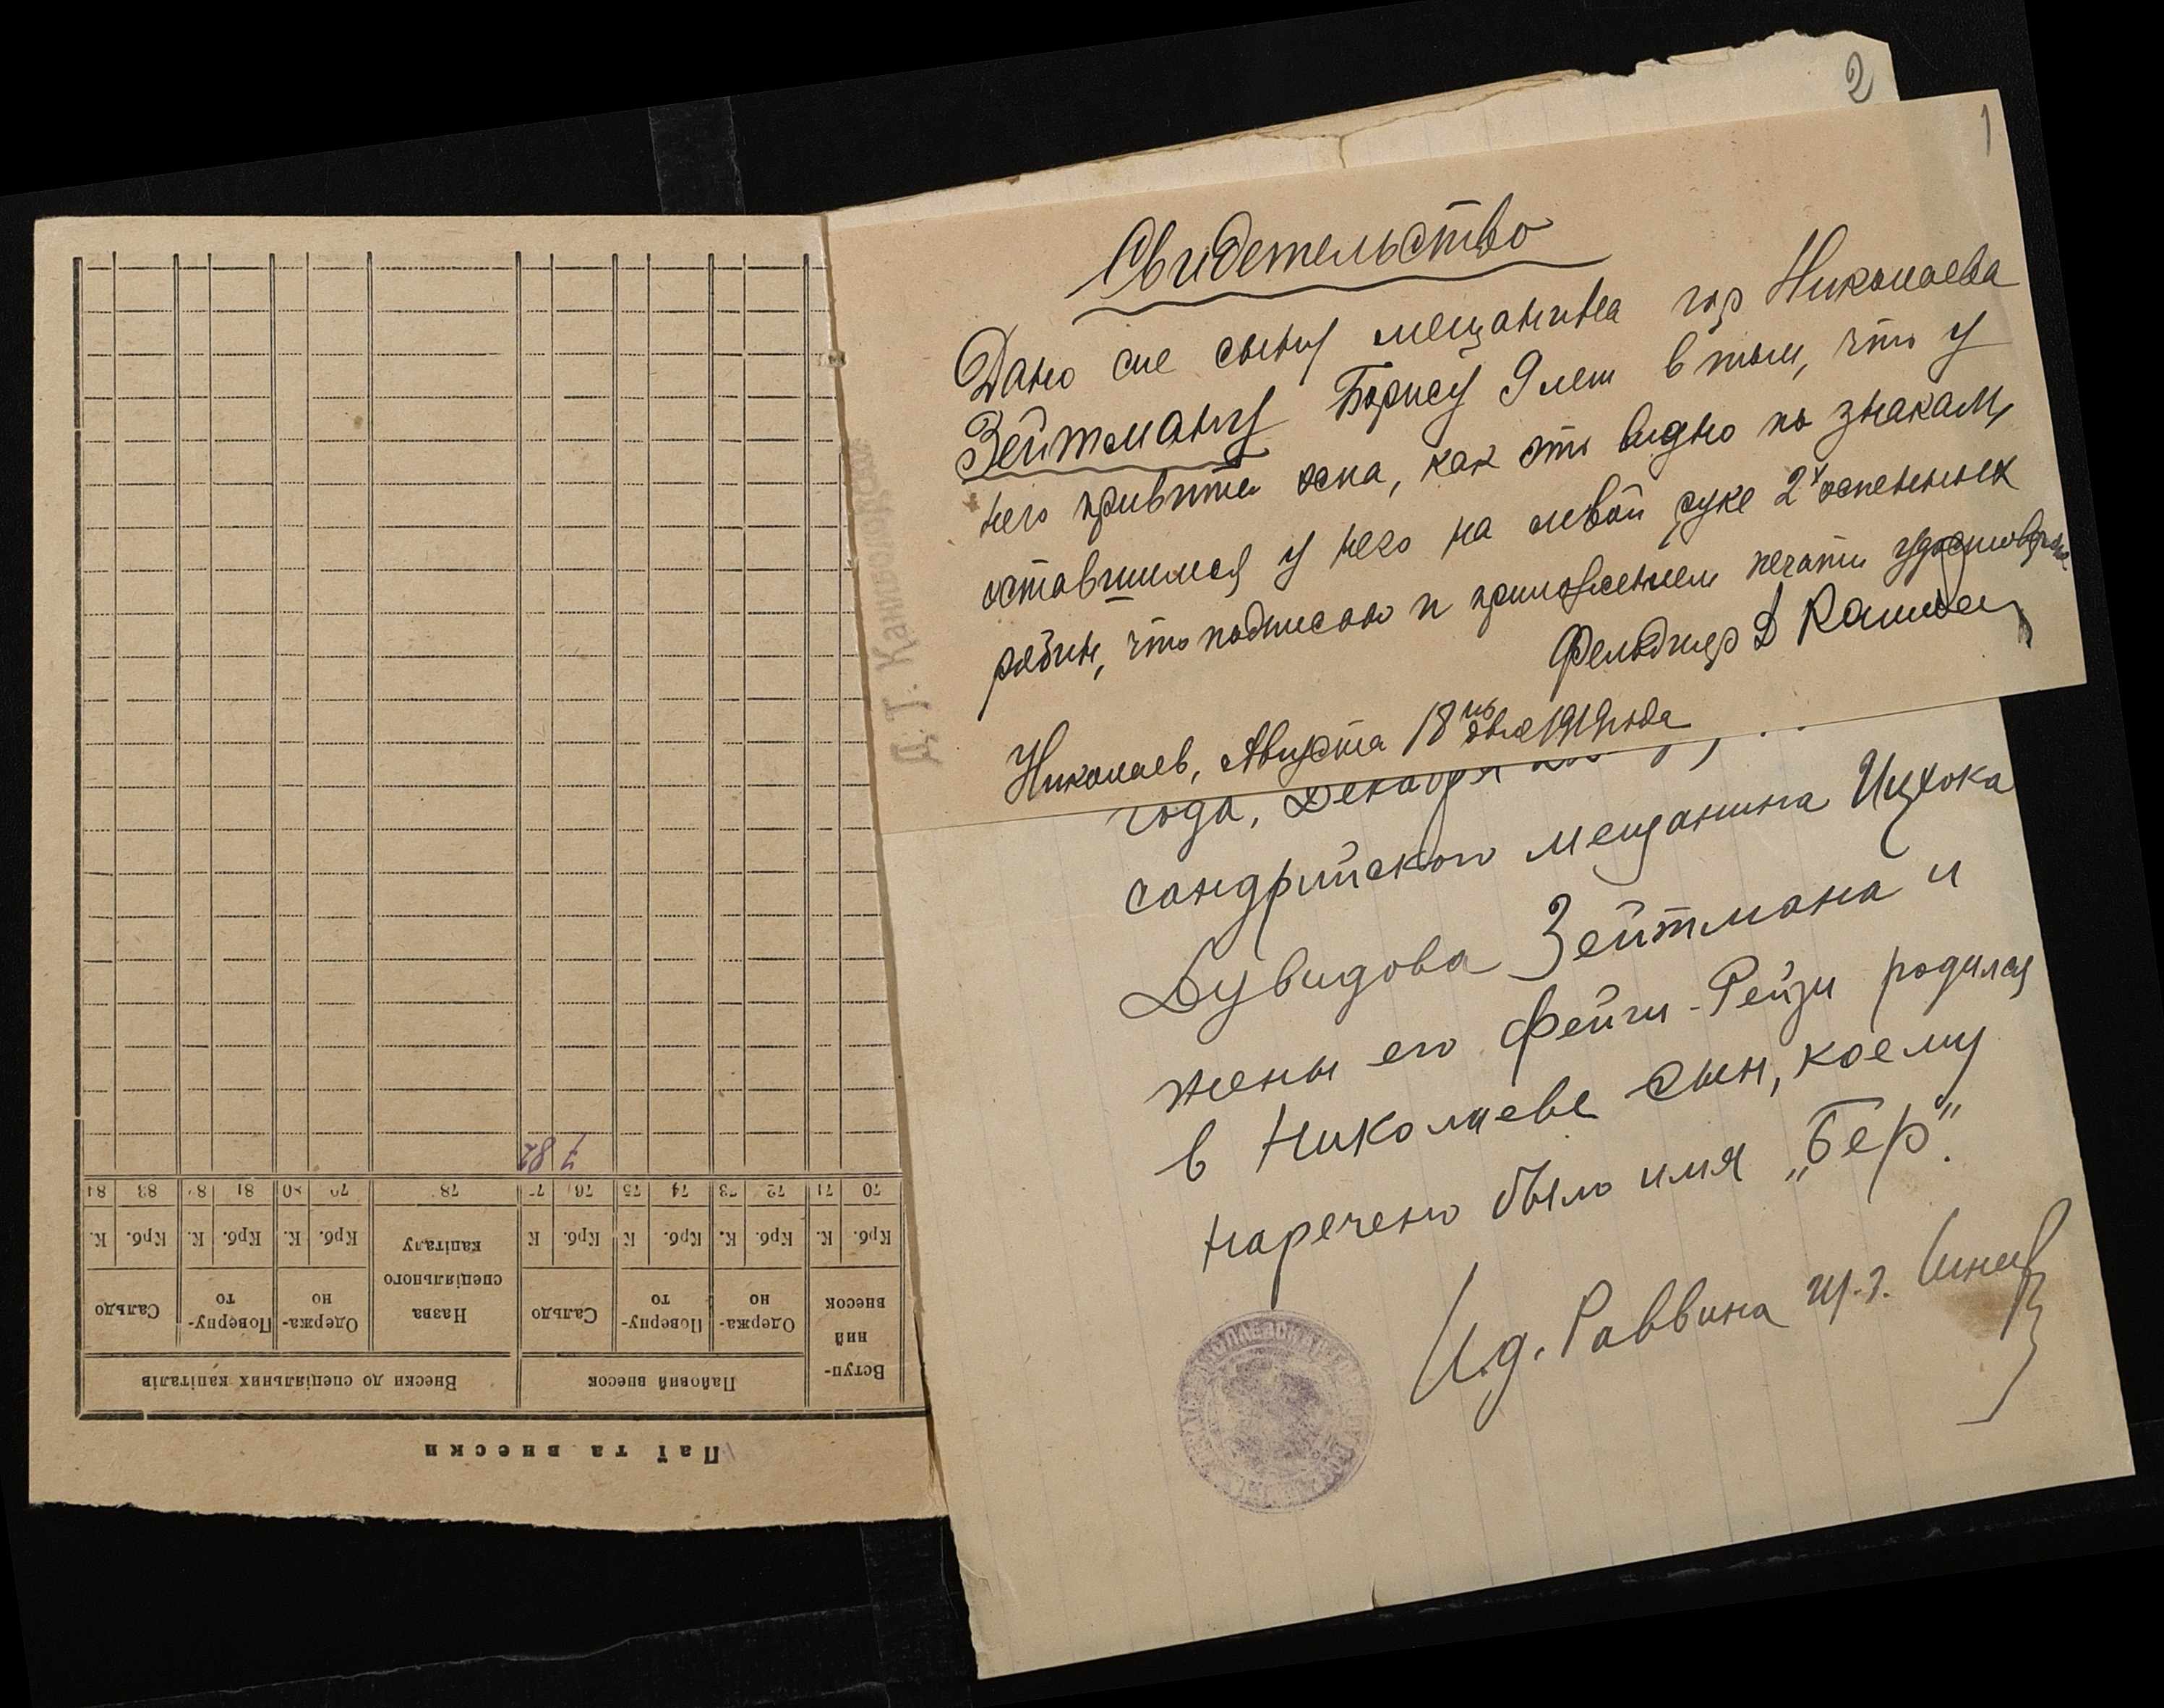 2
1
Свидетельство
Дано сие сыну мещанина гор Николаева
Зейтману Борису 9 лет в том, что у
него привита оспа, как это видно по знакам,
оставшимся у него на левой руке 2х оспенных
рябин, что подписью и приложением печати удостоверяю.
Фельдшер
Николаев, Августа 18го дня 1919 года
года, Декабря
сандрийского мещанина Ицхока
Дувидова Зейтмана и
жены его Фейги-Рейзи родился
в Николаеве сын, коему
наречено было имя „Бер".
И.д. Раввина
Паї та внески
Вступ-
ний
внесок
Пайовий внесок
Внески до спеціяльних капіталів
Одержа-
но
Поверну-
то
Сальдо
Назва
спеціяльного
капіталу
Одержа-
но
Поверну-
то
Сальдо
Крб. К. Крб. К. Крб. К Крб. К Крб. К. Крб. К. Крб. К.
70 71 72 73 74 75 76 77 78 79 80 81 82 83 84
7 82